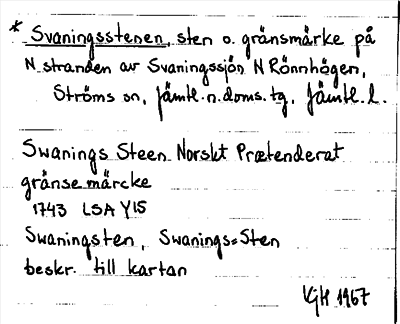 * Svaningsstenen, sten o. gränsmärke på
N stranden av Svaningssjön N Rönnhögen,
Ströms sn, Jämtl. n. doms. tg, Jämtl. l.
Swanings Steen Norskt Prætenderat
gränse märcke
1743 LSA Y15
Swaningsten, Swanings=Sten
beskr. till kartan
KJH 1967